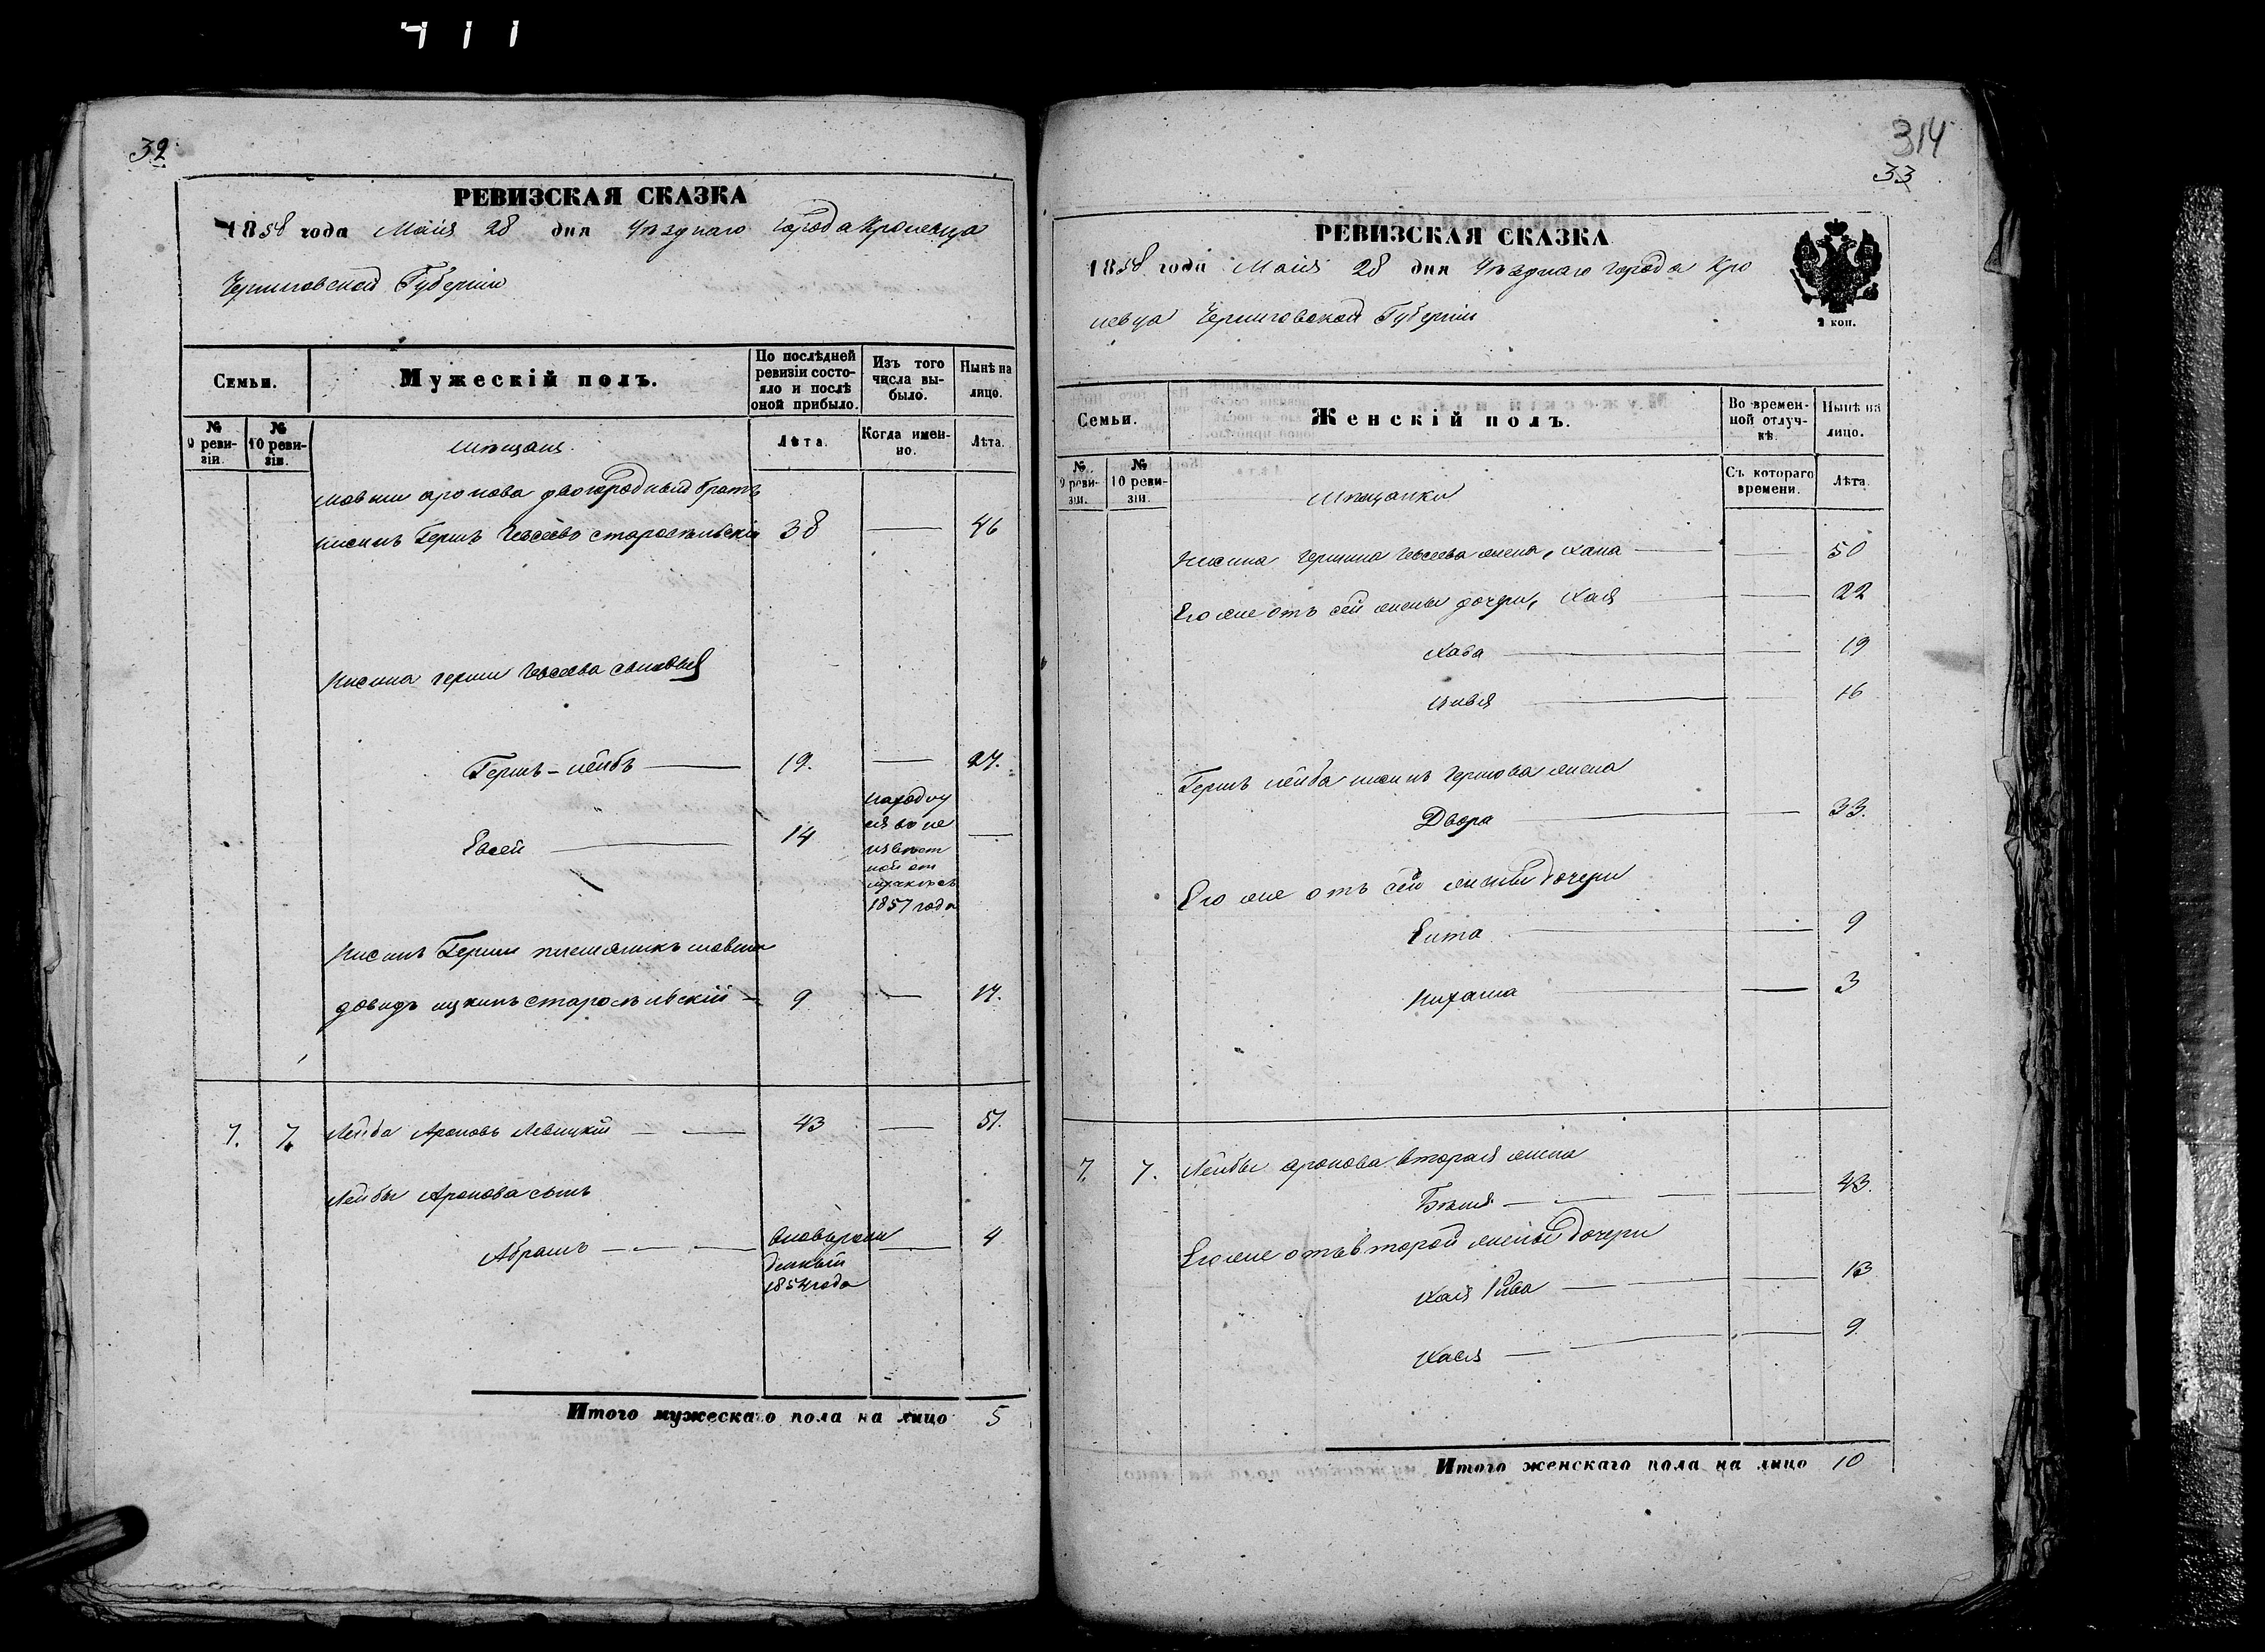 411
32
РЕВИЗСКАЯ СКАЗКА
1858 года Маія 28 дня Уѣзднаго города Кролевца
Черниговской Губерніи
Семьи.
Мужескій полъ.
По послѣдней ревизіи состояло и послѣ оной прибыло.
Изъ того числа выбыло.
Нынѣ на лицо.
№ 9 ревизіи.
№ 10 ревизіи.
Мѣщане.
Лѣта.
Когда именно.
Лѣта.
Мовши Аронова двоюродный братъ
Нисинъ Гершъ Евсеевъ Старосѣльскій 38 — 46
Нисина Герши Евсеева сыновья
Гершъ-Лейбъ — 19. — 27.
Евсей — 14
находит
ся въ не
извѣст
ной от
лучкѣ съ
1857 года
—
Нисинъ Герши племяникъ Мовша
Довидъ Ицкинъ Старосѣльскій — 9 — 17.
7. 7. Лейба Ароновъ Левицкій — 43 — 51.
Лейбы Аронова сынъ
Абрамъ — вновьрож
денный
1854 года
— 4
Итого мужескаго пола на лицо 5
314
33
РЕВИЗСКАЯ СКАЗКА
1858 года Маія 28 дня Уѣзднаго города Кро
левца Черниговской Губерніи
2 коп.
Семьи.
Женскій полъ.
Во временной отлучкѣ.
Нынѣ на лицо.
№ 9 ревизіи.
№ 10 ревизіи.
Мѣщанки
Съ котораго времени.
Лѣта.
Нисина Гершина Евсеева жена, Хана — — 50
Его же отъ сей жены дочери, Хая — — 22
Хава — — 19
Цивья — — 16
Гершъ Лейба Нисинъ Гершова жена
Двора — — 33.
Его же отъ сей жены дочери
Ента — — 9
— — 3
7. 7. Лейбы Аронова вторая жена
Бѣля — — 43.
Его же отъ второй жены дочери
Хая Рива — — 13
Хася — — 9
Итого женскаго пола на лицо 10